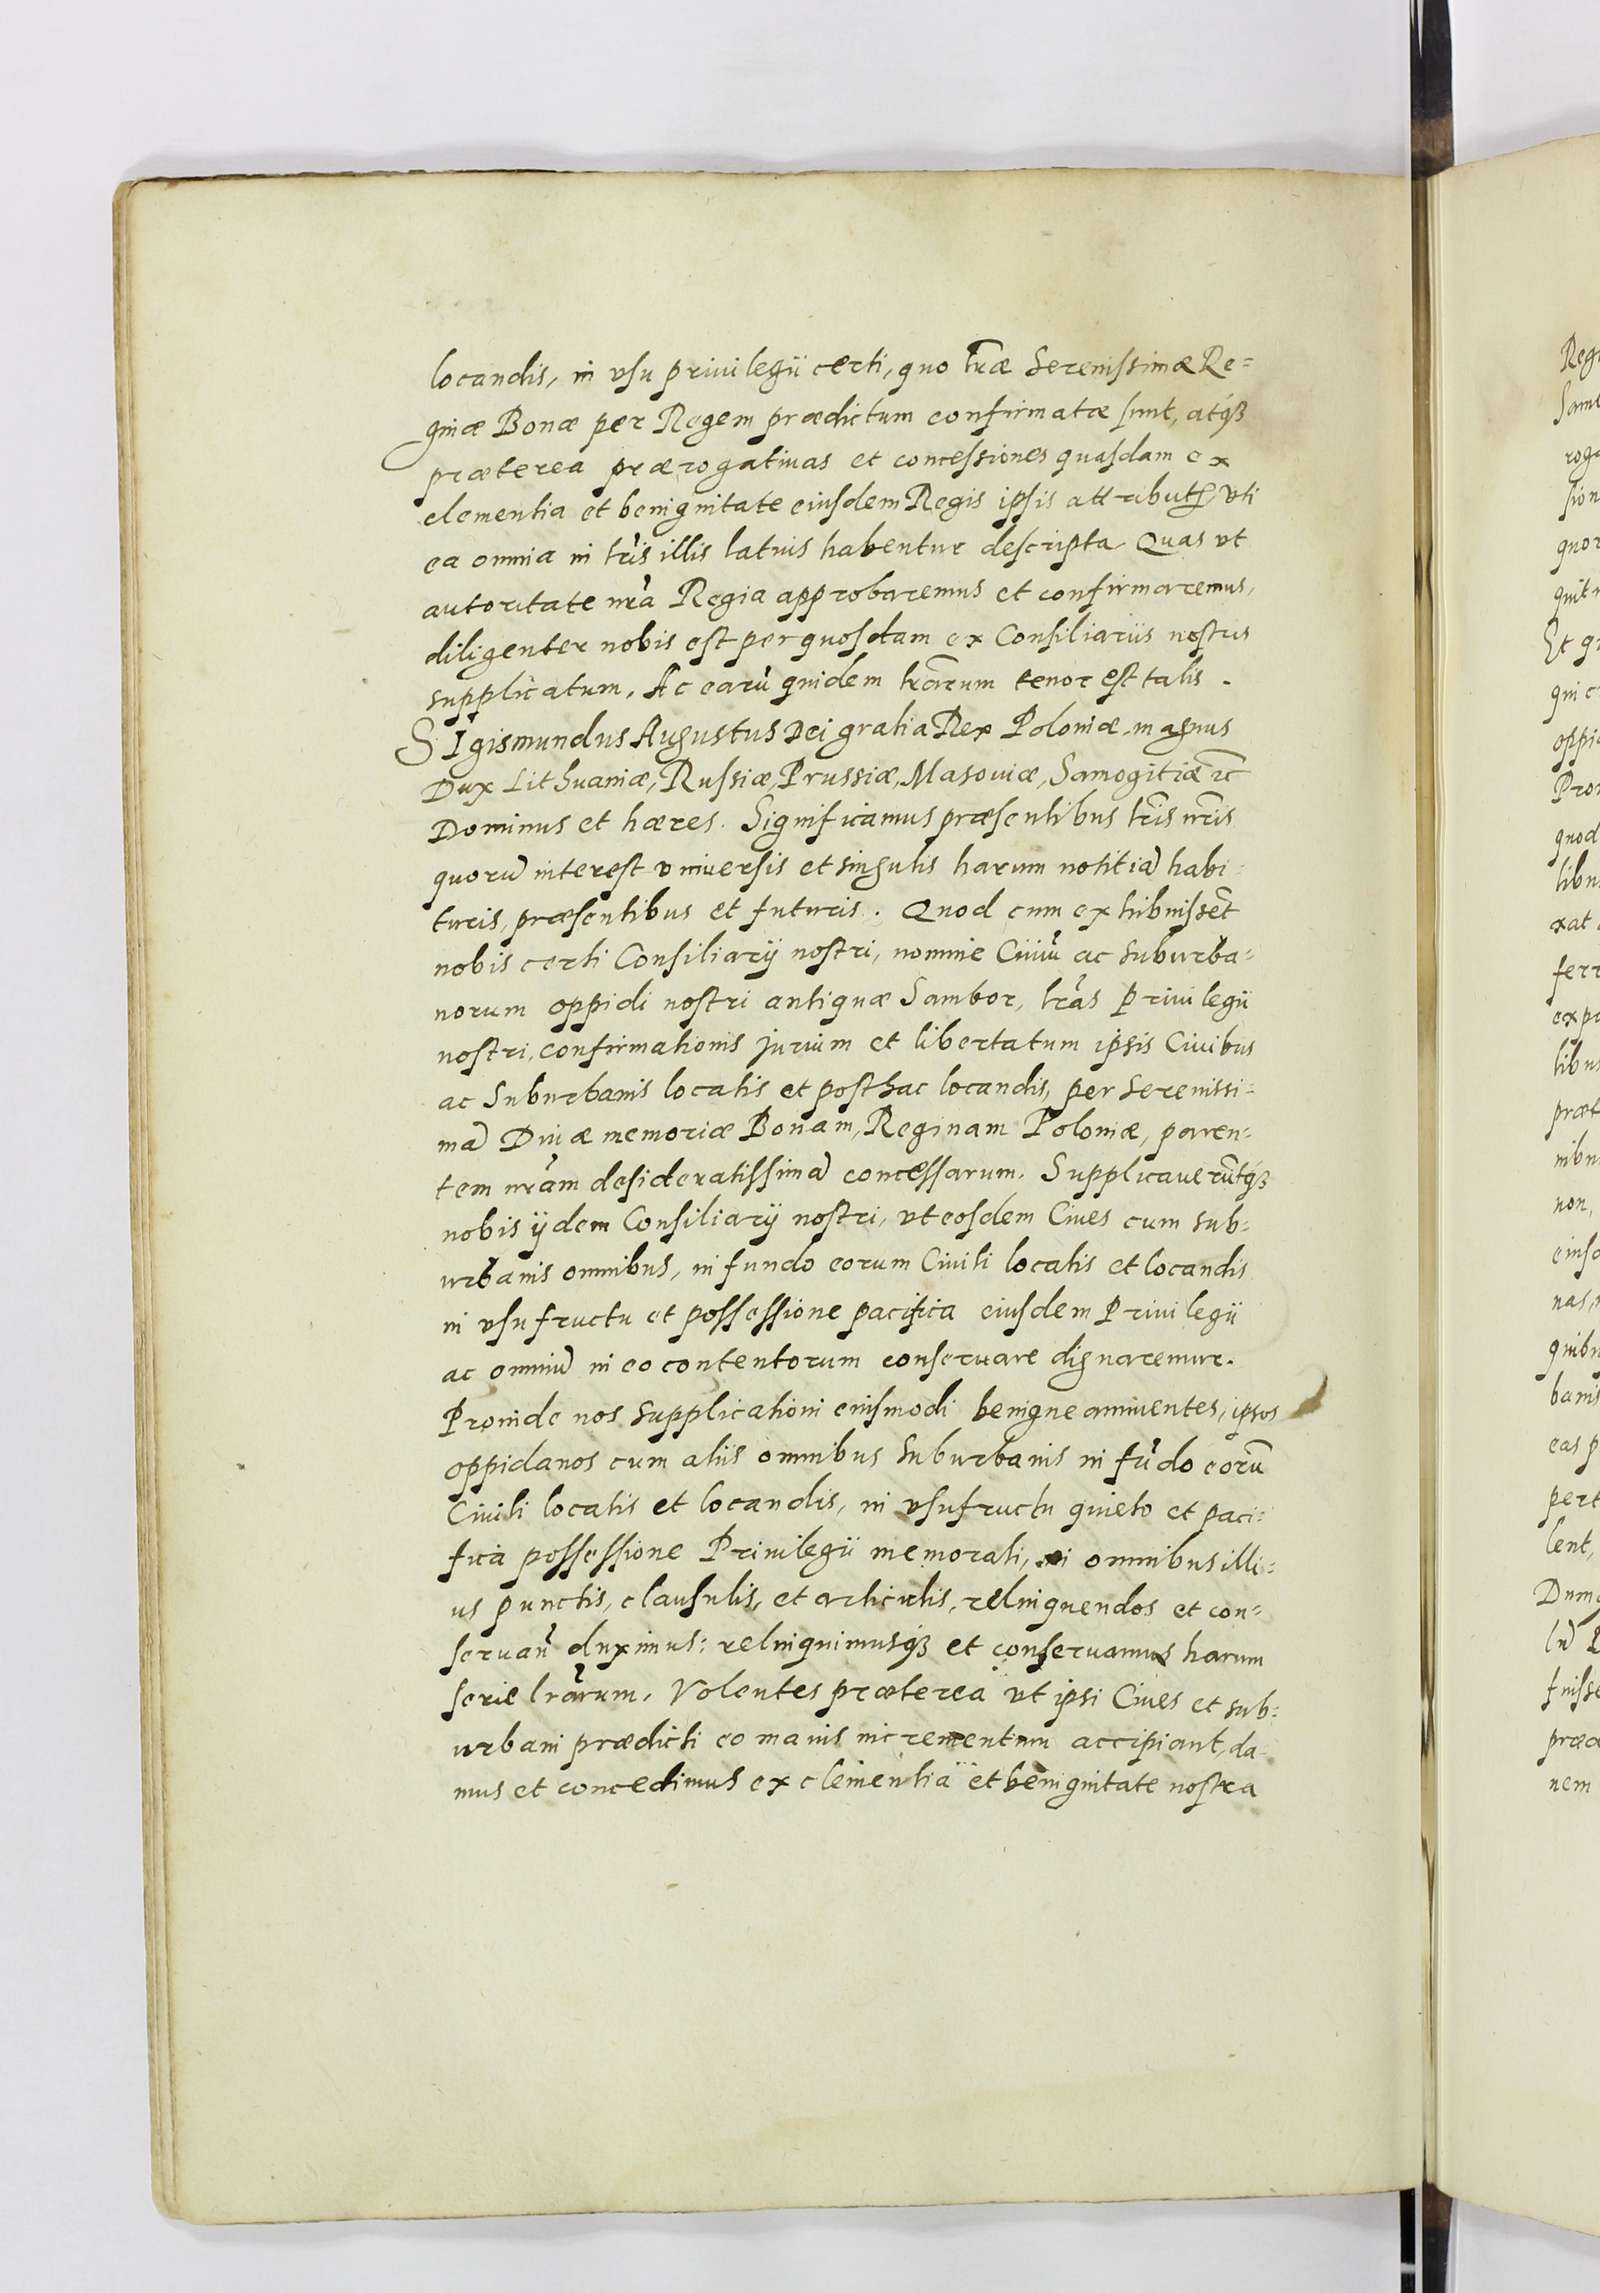 locandis, in vsu priuilegii certi, quo lr̃æ Serenissimæ Re=
ginæ Bonæ per Regem prædictum confirmatæ sunt, atq₃
præterea prærogatiuas et concessiones quasdam ex
clementia et benignitate eiusdem Regis ipsis attribut, vti
ea omnia in lr̃is illis latius habentur descripta Quas vt
autoritate nr̃a Regia approbaremus et confirmaremus,
diligenter nobis est per quosdam ex Consiliariis nostris
supplicatum. Ac earũ quidem lr̃arum tenor est talis.
SIgismundus Augustus Dei gratia Rex Poloniæ, magnus
Dux Lithuaniæ, Russiæ, Prussiæ, Masouiæ, Samogitiæ ꝛc̃
Dominus et hæres. Significamus præsentibus lr̃is nr̃is
quorũ interest vniuersis et singulis harum notitiã habi=
turis, præsentibus et futuris. Quod cum exhibuissẽt
nobis certi Consiliarij nostri, nomine Ciuiũ ac suburba=
norum oppidi nostri antiquæ Sambor, lr̃as Priuilegii
nostri, confirmationis jurium et libertatum ipsis Ciuibus
ac Suburbanis locatis et posthac locandis, per Serenissi=
mã Diuæ memoriæ Bonam, Reginam Poloniæ, paren=
tem nr̃am desideratissimã concessarum. Supplicauerũtq₃
nobis ijdem Consiliarij nostri, vt eosdem Ciues cum sub=
urbanis omnibus, in fundo eorum Ciuili locatis et locandis
in vsufructu et possessione pacifica eiusdem Priuilegii
ac omniũ in eo contentorum conseruare dignaremur.
Proinde nos supplicationi eiusmodi benigne annuentes, ipsos
oppidanos cum aliis omnibus Suburbanis in fũdo eorũ
Ciuili locatis et locandis, in vsufructu quieto et paci=
fica possessione Priuilegii memorati, in omnibus illi=
us punctis, clausulis, et articulis, relinquendos et con=
seruañ duximus: relinquimusq₃ et conseruamus harum
serie lr̃arum. Volentes præterea vt ipsi Ciues et sub=
urbani prædicti eo maius incrementum accipiant, da=
mus et concedimus ex clementia et benignitate nostra